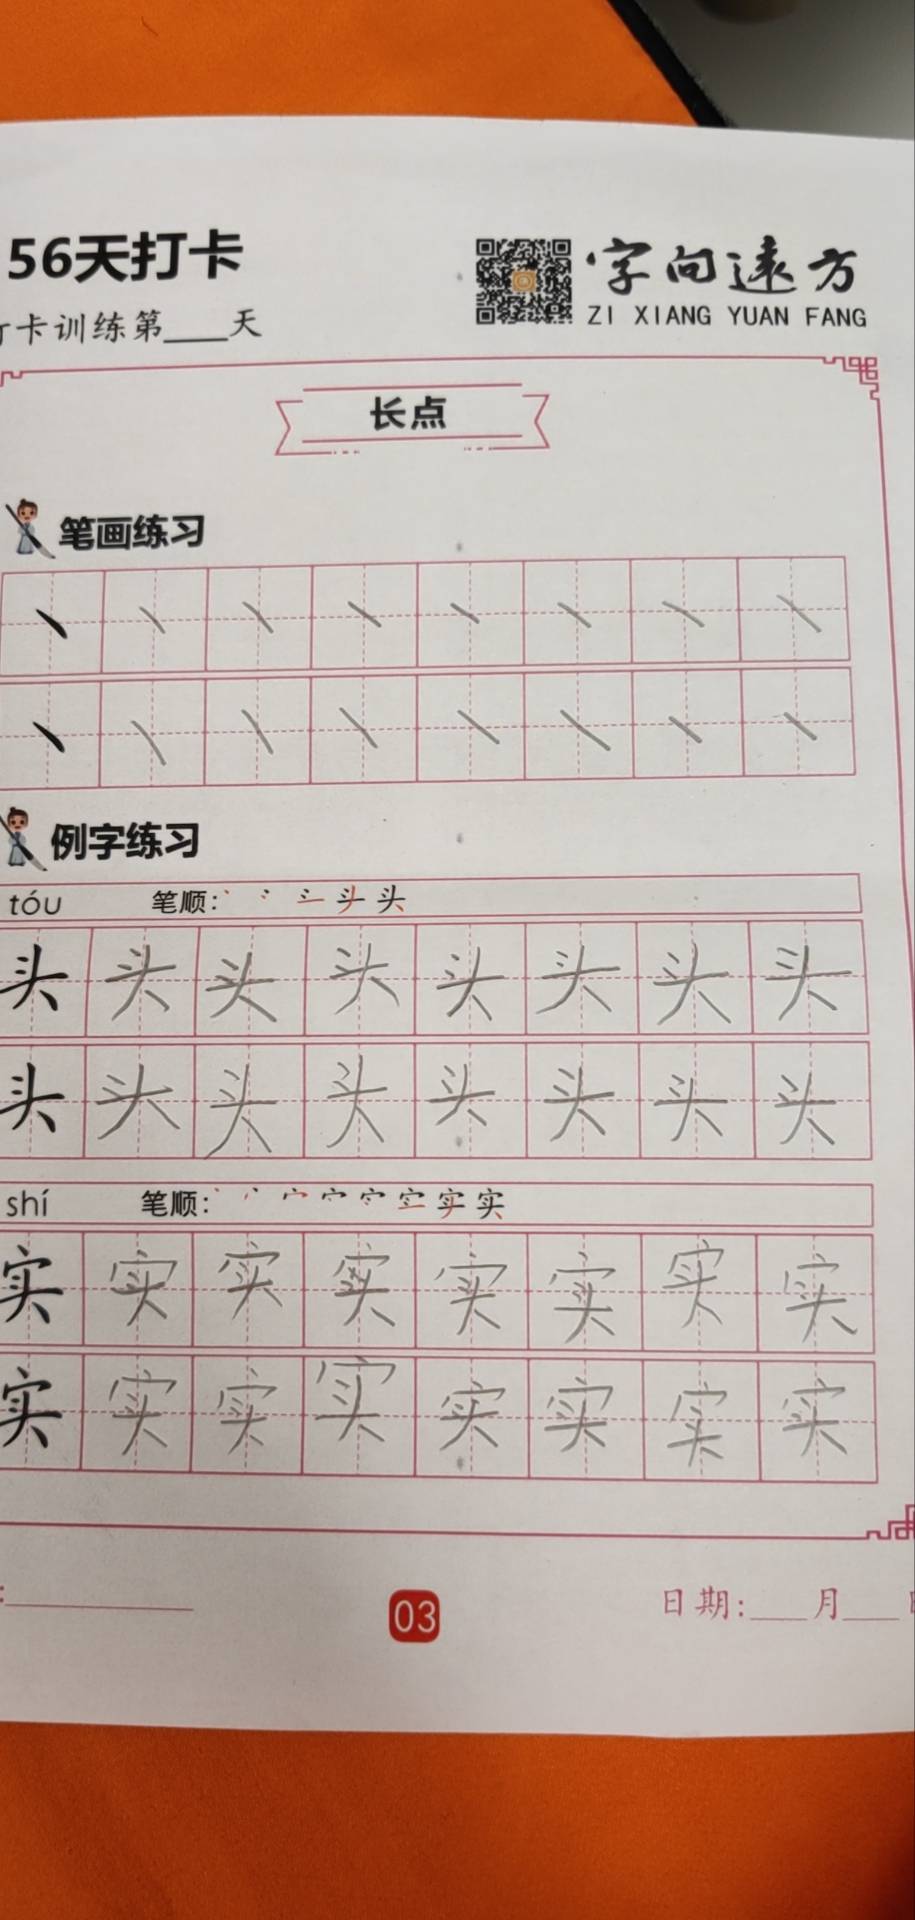 56天打卡
字向远方
ZI XIANG YUAN FANG
打卡训练第____天
长点
笔画练习
例字练习
tóu 笔顺:丶 头 头
头 头 头 头 头 头 头 头
头 头 头 头 头 头 头 头
shí 笔顺:丶 宀 宀 实 实
实 实 实 实 实 实 实 实
实 实 实 实 实 实 实 实
:____ 03 日期:____月____日